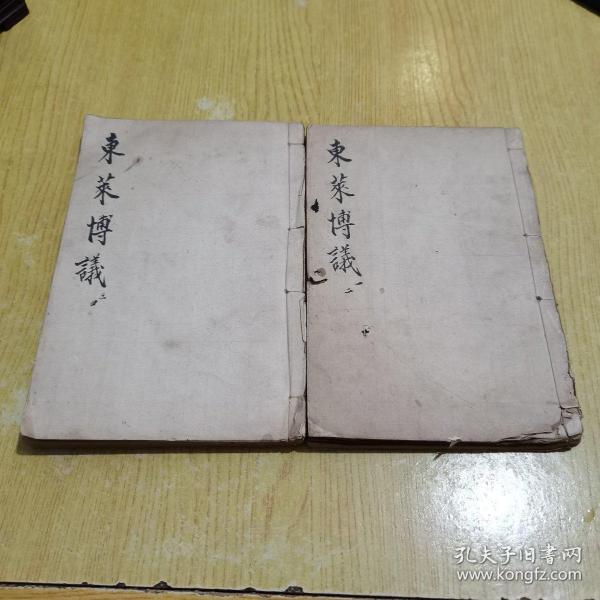 東萊博議 三四
東萊博議 一二
孔夫子旧书网
www.kongfz.com